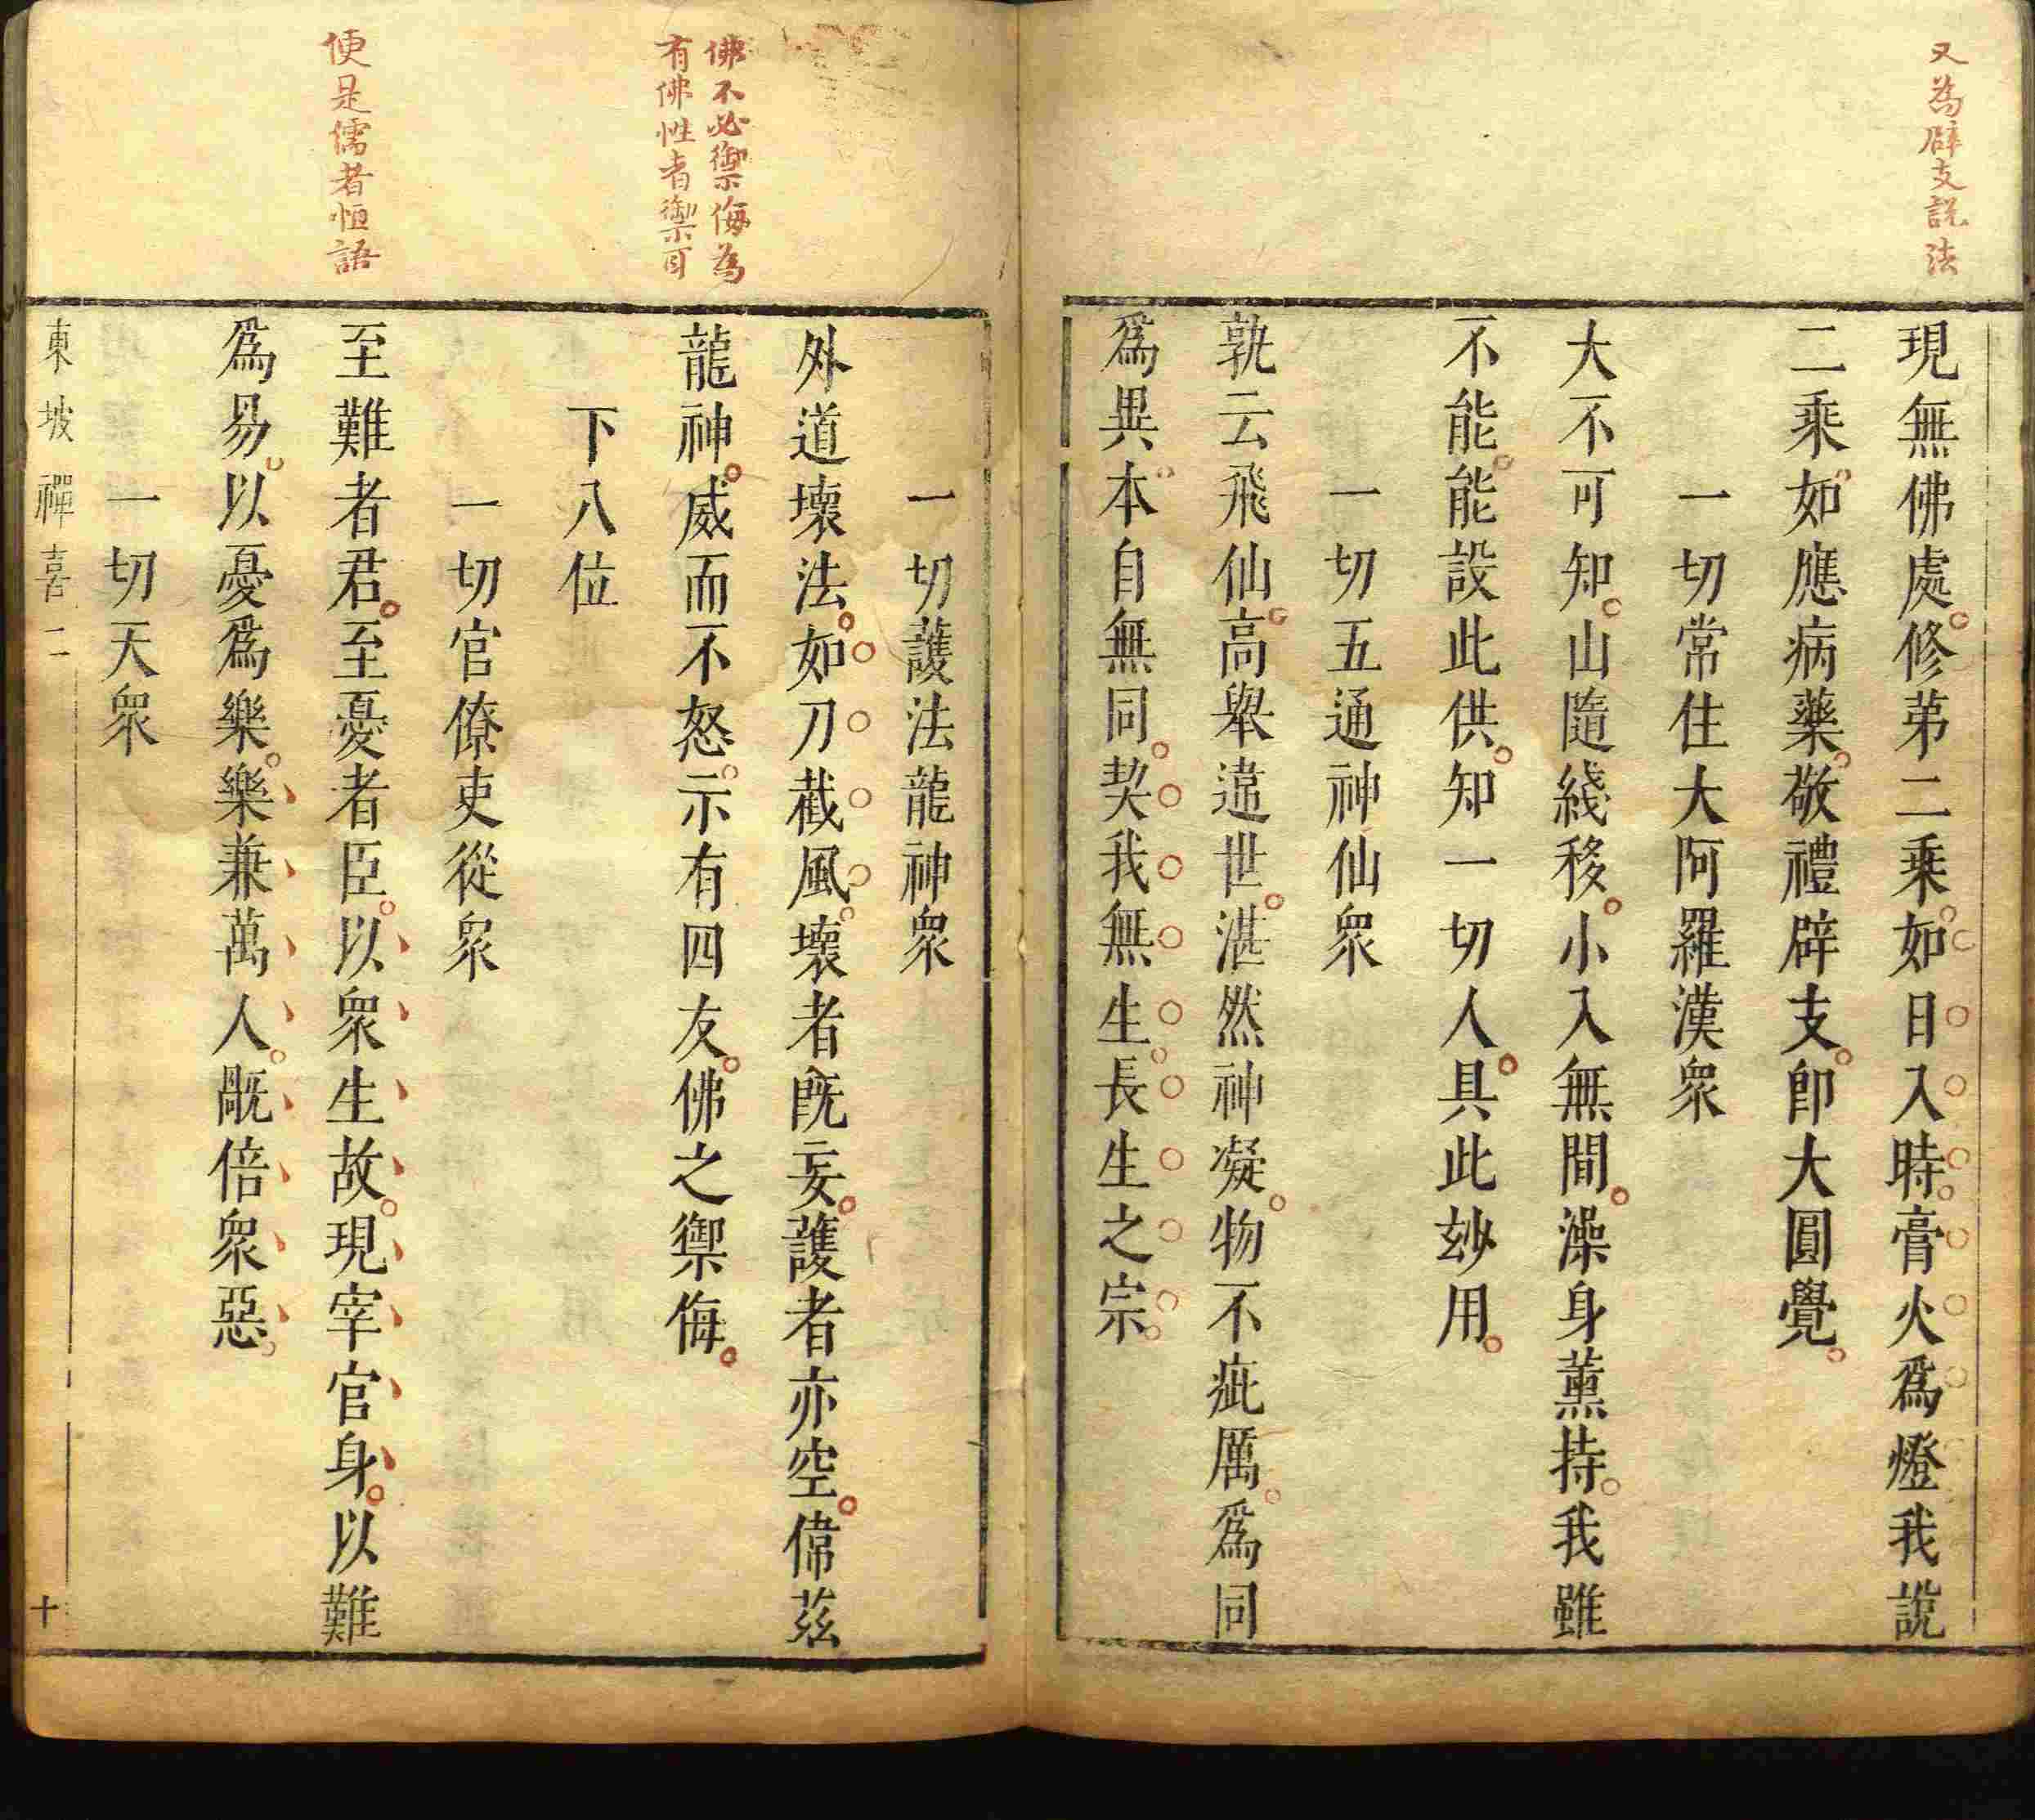 又為辟支說法
現無佛處。修第二乗。如日入時。膏火爲燈我說
二乘。如應病藥。敬禮辟支。卽大圓覺。
一切常住大阿羅漢衆
大不可知。山隨綫移。小入無間。澡身薰持。我雖
不能。能設此供。知一切人。具此玅用。
一切五通神仙衆
孰云飛仙。高舉違世。湛然神凝。物不疵厲。爲同
爲異。本自無同。契我無生。長生之宗。
佛不必禦侮為
有佛性者禦耳
便是儒者恒語
一切護法龍神衆
外道壞法。如刀截風。壞者旣妄。護者亦空。偉茲
龍神。威而不怒。示有四友。佛之禦侮。
下八位
一切官僚吏從衆
至難者君。至憂者臣。以衆生故。現宰官身。以難
爲易。以憂爲樂。樂兼萬人。旤倍衆惡。
一切天衆
東坡禪喜二 十